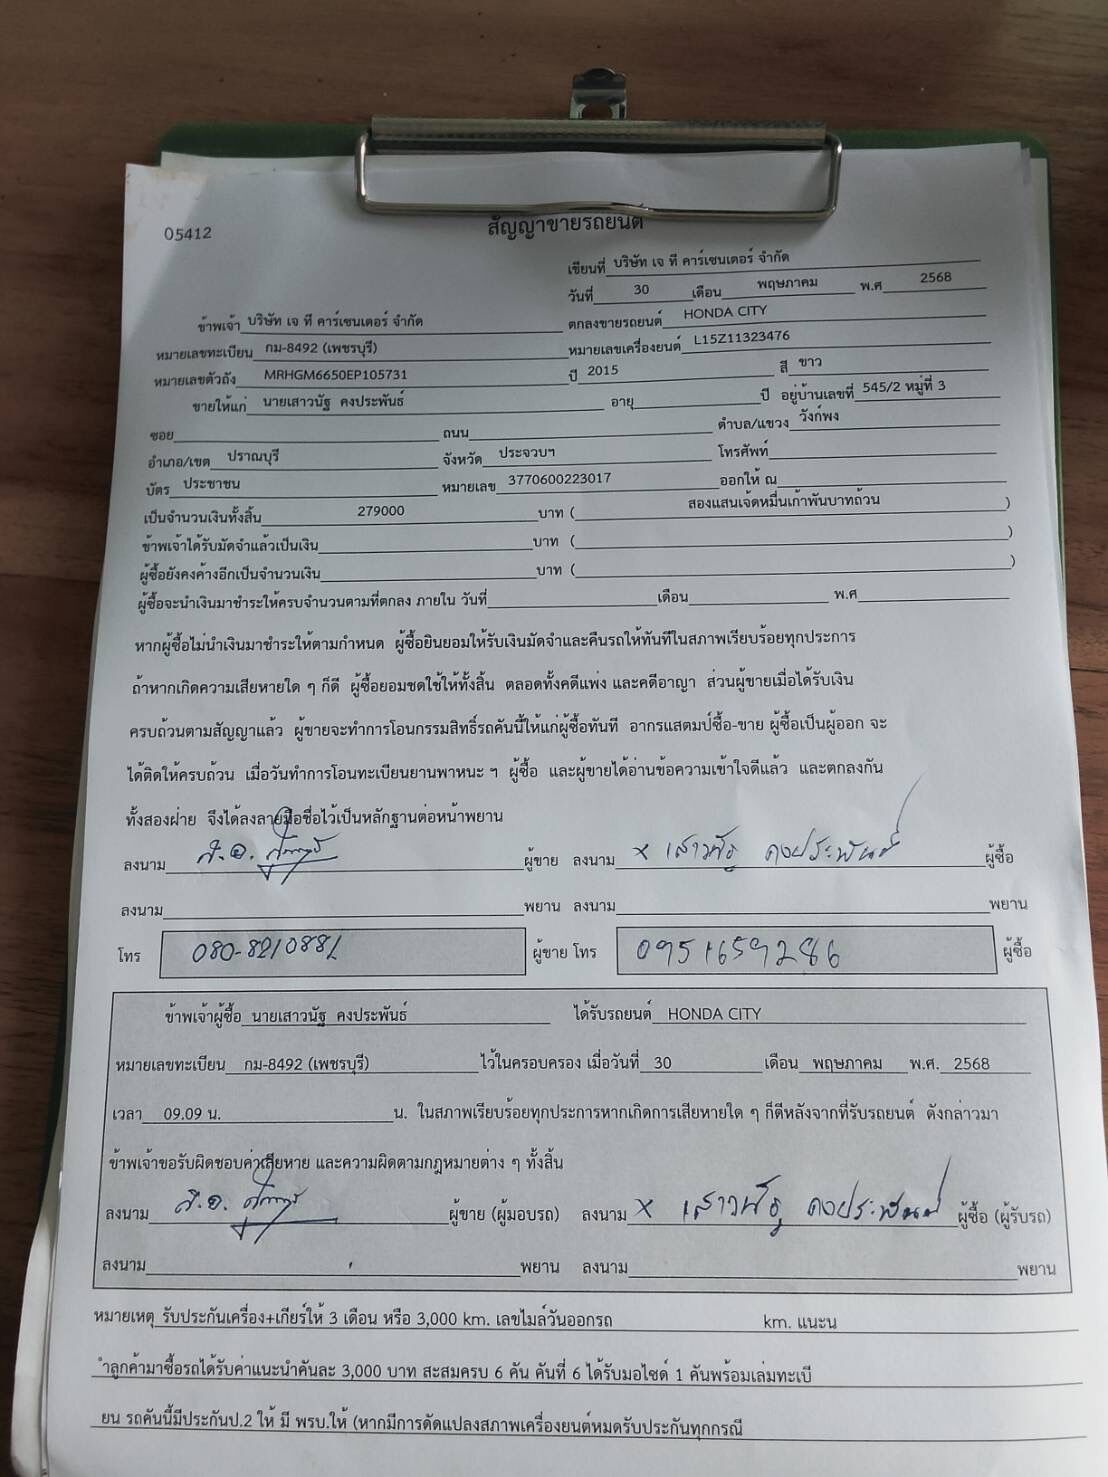 05412
สัญญาขายรถยนต์
เขียนที่ บริษัท เจ ที คาร์เซนเตอร์ จำกัด
วันที่ 30 เดือน พฤษภาคม พ.ศ 2568
ข้าพเจ้า บริษัท เจ ที คาร์เซนเตอร์ จำกัด ตกลงขายรถยนต์ HONDA CITY
หมายเลขทะเบียน กม-8492 (เพชรบุรี) หมายเลขเครื่องยนต์ L15Z11323476
หมายเลขตัวถัง MRHGM6650EP105731 ปี 2015 สี ขาว
ขายให้แก่ นายเสาวนัฐ คงประพันธ์ อายุ ปี อยู่บ้านเลขที่ 545/2 หมู่ที่ 3
ซอย ถนน ตำบล/แขวง วังก์พง
อำเภอ/เขต ปราณบุรี จังหวัด ประจวบฯ โทรศัพท์
บัตร ประชาชน หมายเลข 3770600223017 ออกให้ ณ
เป็นจำนวนเงินทั้งสิ้น 279000 บาท ( สองแสนเจ็ดหมื่นเก้าพันบาทถ้วน )
ข้าพเจ้าได้รับมัดจำแล้วเป็นเงิน บาท ( )
ผู้ซื้อยังคงค้างอีกเป็นจำนวนเงิน บาท ( )
ผู้ซื้อจะนำเงินมาชำระให้ครบจำนวนตามที่ตกลง ภายใน วันที่ เดือน พ.ศ
หากผู้ซื้อไม่นำเงินมาชำระให้ตามกำหนด ผู้ซื้อยินยอมให้รับเงินมัดจำและคืนรถให้ทันทีในสภาพเรียบร้อยทุกประการ
ถ้าหากเกิดความเสียหายใด ๆ ก็ดี ผู้ซื้อยอมชดใช้ให้ทั้งสิ้น ตลอดทั้งคดีแพ่ง และคดีอาญา ส่วนผู้ขายเมื่อได้รับเงิน
ครบถ้วนตามสัญญาแล้ว ผู้ขายจะทำการโอนกรรมสิทธิ์รถคันนี้ให้แก่ผู้ซื้อทันที อากรแสตมป์ซื้อ-ขาย ผู้ซื้อเป็นผู้ออก จะ
ได้ติดให้ครบถ้วน เมื่อวันทำการโอนทะเบียนยานพาหนะ ฯ ผู้ซื้อ และผู้ขายได้อ่านข้อความเข้าใจดีแล้ว และตกลงกัน
ทั้งสองฝ่าย จึงได้ลงลายมือชื่อไว้เป็นหลักฐานต่อหน้าพยาน
ลงนาม ผู้ขาย ลงนาม x เสาวนัฐ คงประพันธ์ ผู้ซื้อ
ลงนาม พยาน ลงนาม พยาน
โทร 080-8210881 ผู้ขาย โทร 0951659286 ผู้ซื้อ
ข้าพเจ้าผู้ซื้อ นายเสาวนัฐ คงประพันธ์ ได้รับรถยนต์ HONDA CITY
หมายเลขทะเบียน กม-8492 (เพชรบุรี) ไว้ในครอบครอง เมื่อวันที่ 30 เดือน พฤษภาคม พ.ศ. 2568
เวลา 09.09 น. น. ในสภาพเรียบร้อยทุกประการหากเกิดการเสียหายใด ๆ ก็ดีหลังจากที่รับรถยนต์ ดังกล่าวมา
ข้าพเจ้าขอรับผิดชอบค่าเสียหาย และความผิดตามกฎหมายต่าง ๆ ทั้งสิ้น
ลงนาม ผู้ขาย (ผู้มอบรถ) ลงนาม x เสาวนัฐ คงประพันธ์ ผู้ซื้อ (ผู้รับรถ)
ลงนาม พยาน ลงนาม พยาน
หมายเหตุ รับประกันเครื่อง+เกียร์ให้ 3 เดือน หรือ 3,000 km. เลขไมล์วันออกรถ km. แนะน
ำลูกค้ามาซื้อรถได้รับค่าแนะนำคันละ 3,000 บาท สะสมครบ 6 คัน คันที่ 6 ได้รับมอไซด์ 1 คันพร้อมเล่มทะเบี
ยน รถคันนี้มีประกันป.2 ให้ มี พรบ.ให้ (หากมีการดัดแปลงสภาพเครื่องยนต์หมดรับประกันทุกกรณี